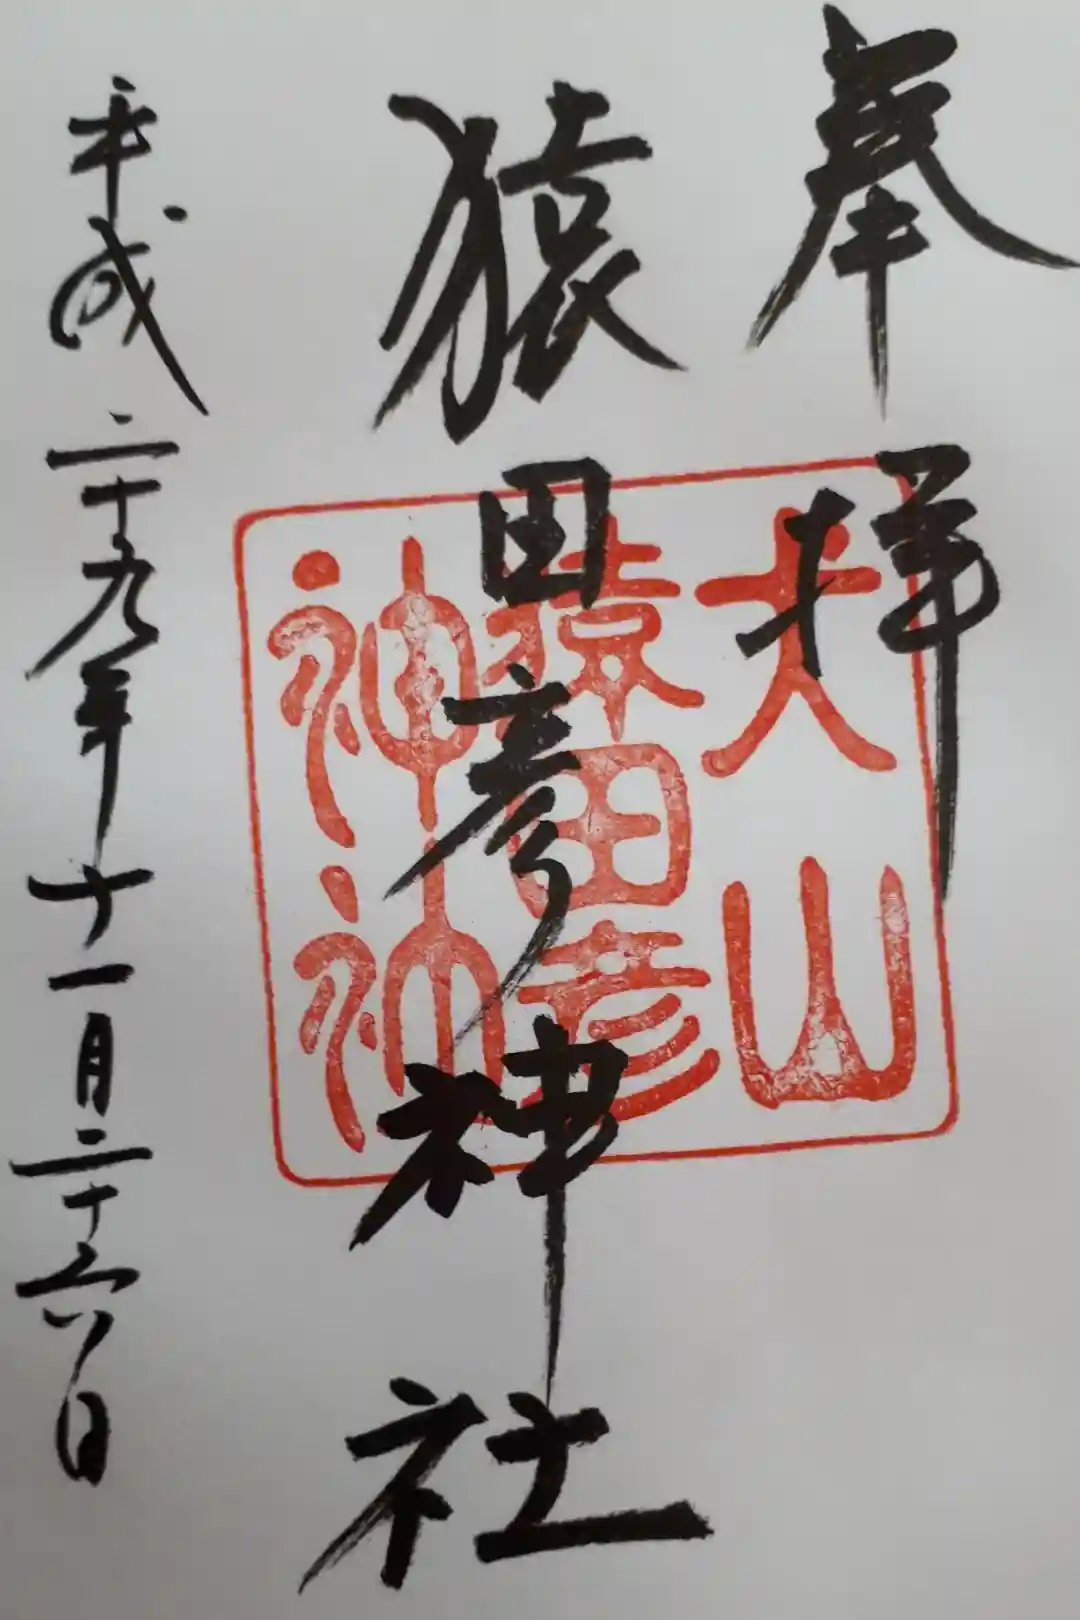 奉拝
猿田彦神社
平成二十九年十一月二十六日
犬山
猿田彦
神